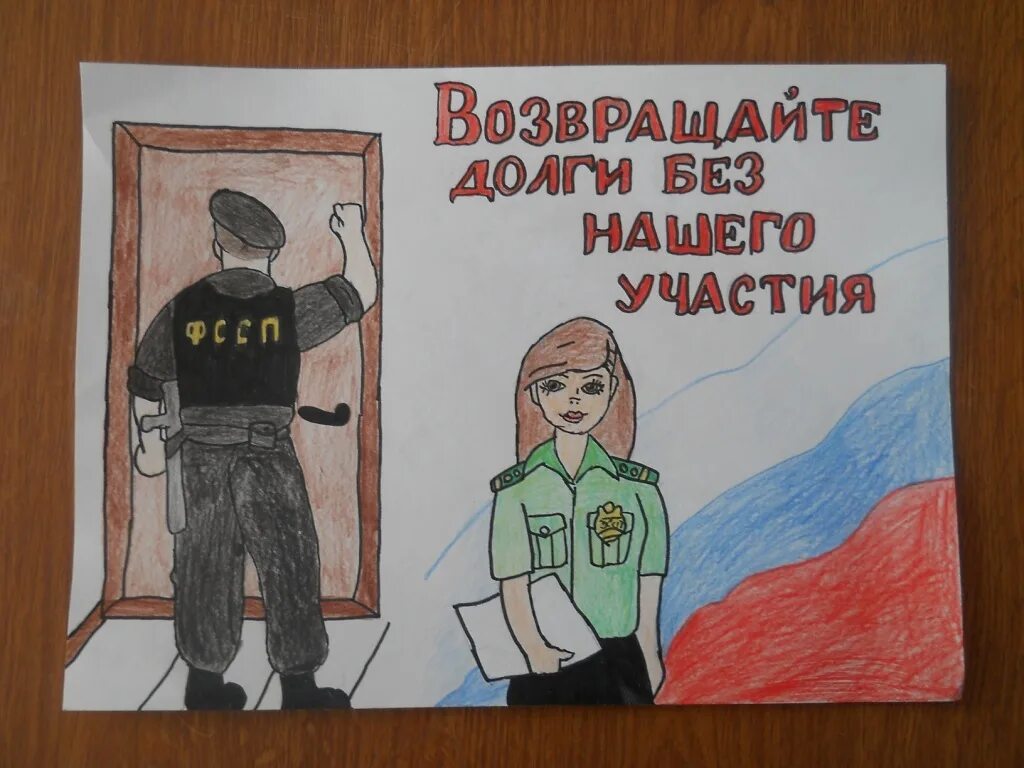 Возвращайте
долги без
нашего
участия
ФССП